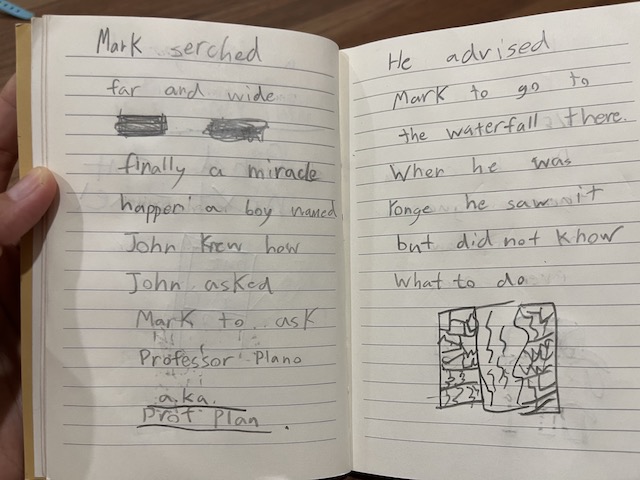 Mark serched
far and wide
finally a miracle
happen' a boy named
John Knew how
John asked
Mark to ask
Professor Plano
a.k.a.
Prof Plan.
He advised
Mark to go to
the waterfall there.
When he was
he saw it
but did not know
What to do